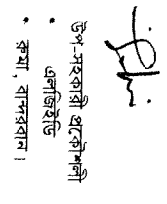 উপ-সহকারী প্রকৌশলী
এলজিইডি
রুমা, বান্দরবান।